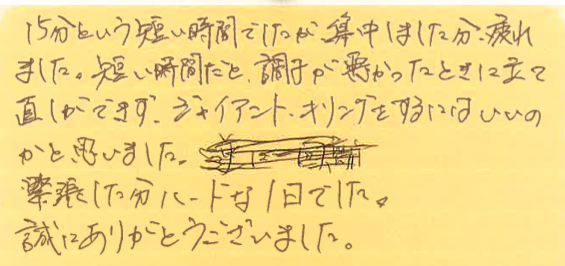 15分という短い時間でしたが、集中しました分、疲れ
ました。短い時間だと、調子が悪かったときに立て
直しができず、ジャイアント・キリングをするにはいいの
かと思いました。
緊張した分ハードな1日でした。
誠にありがとうございました。